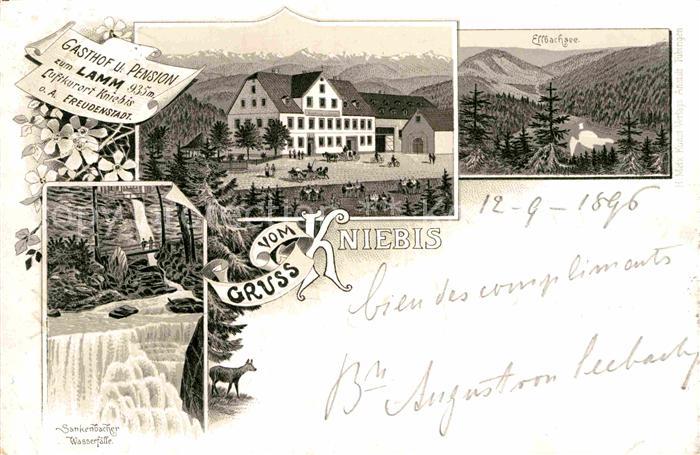 GASTHOF U. PENSION
zum LAMM 935 m
Luftkurort Kniebis
O. A. FREUDENSTADT.
Ellbachsee.
H. Metz Kunst Verlags Anstalt Tübingen
12-9-1896
GRUSS VOM KNIEBIS
bien des compliments
Bn August von Seebach
Sankenbacher
Wasserfälle.